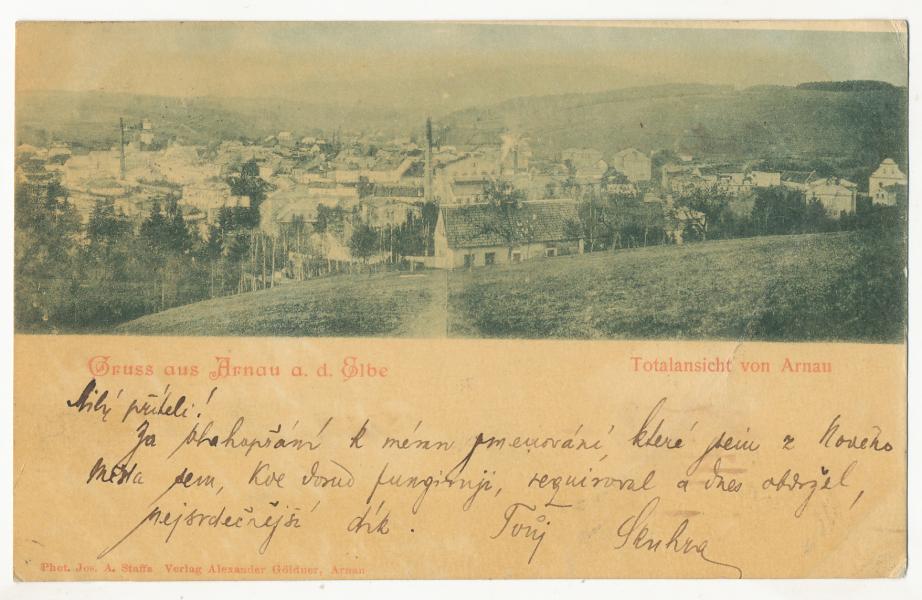 Gruss aus Arnau a. d. Elbe
Totalansicht von Arnau
Milý příteli!
Za blahopřání k mému jmenování, které jsem z Nového
Města sem, kde dosud funguruji, requiroval a dnes obdržel,
nejsrdečnější dík. Tvůj Skuhra
Phot. Jos. A. Staffa Verlag Alexander Göldner, Arnau